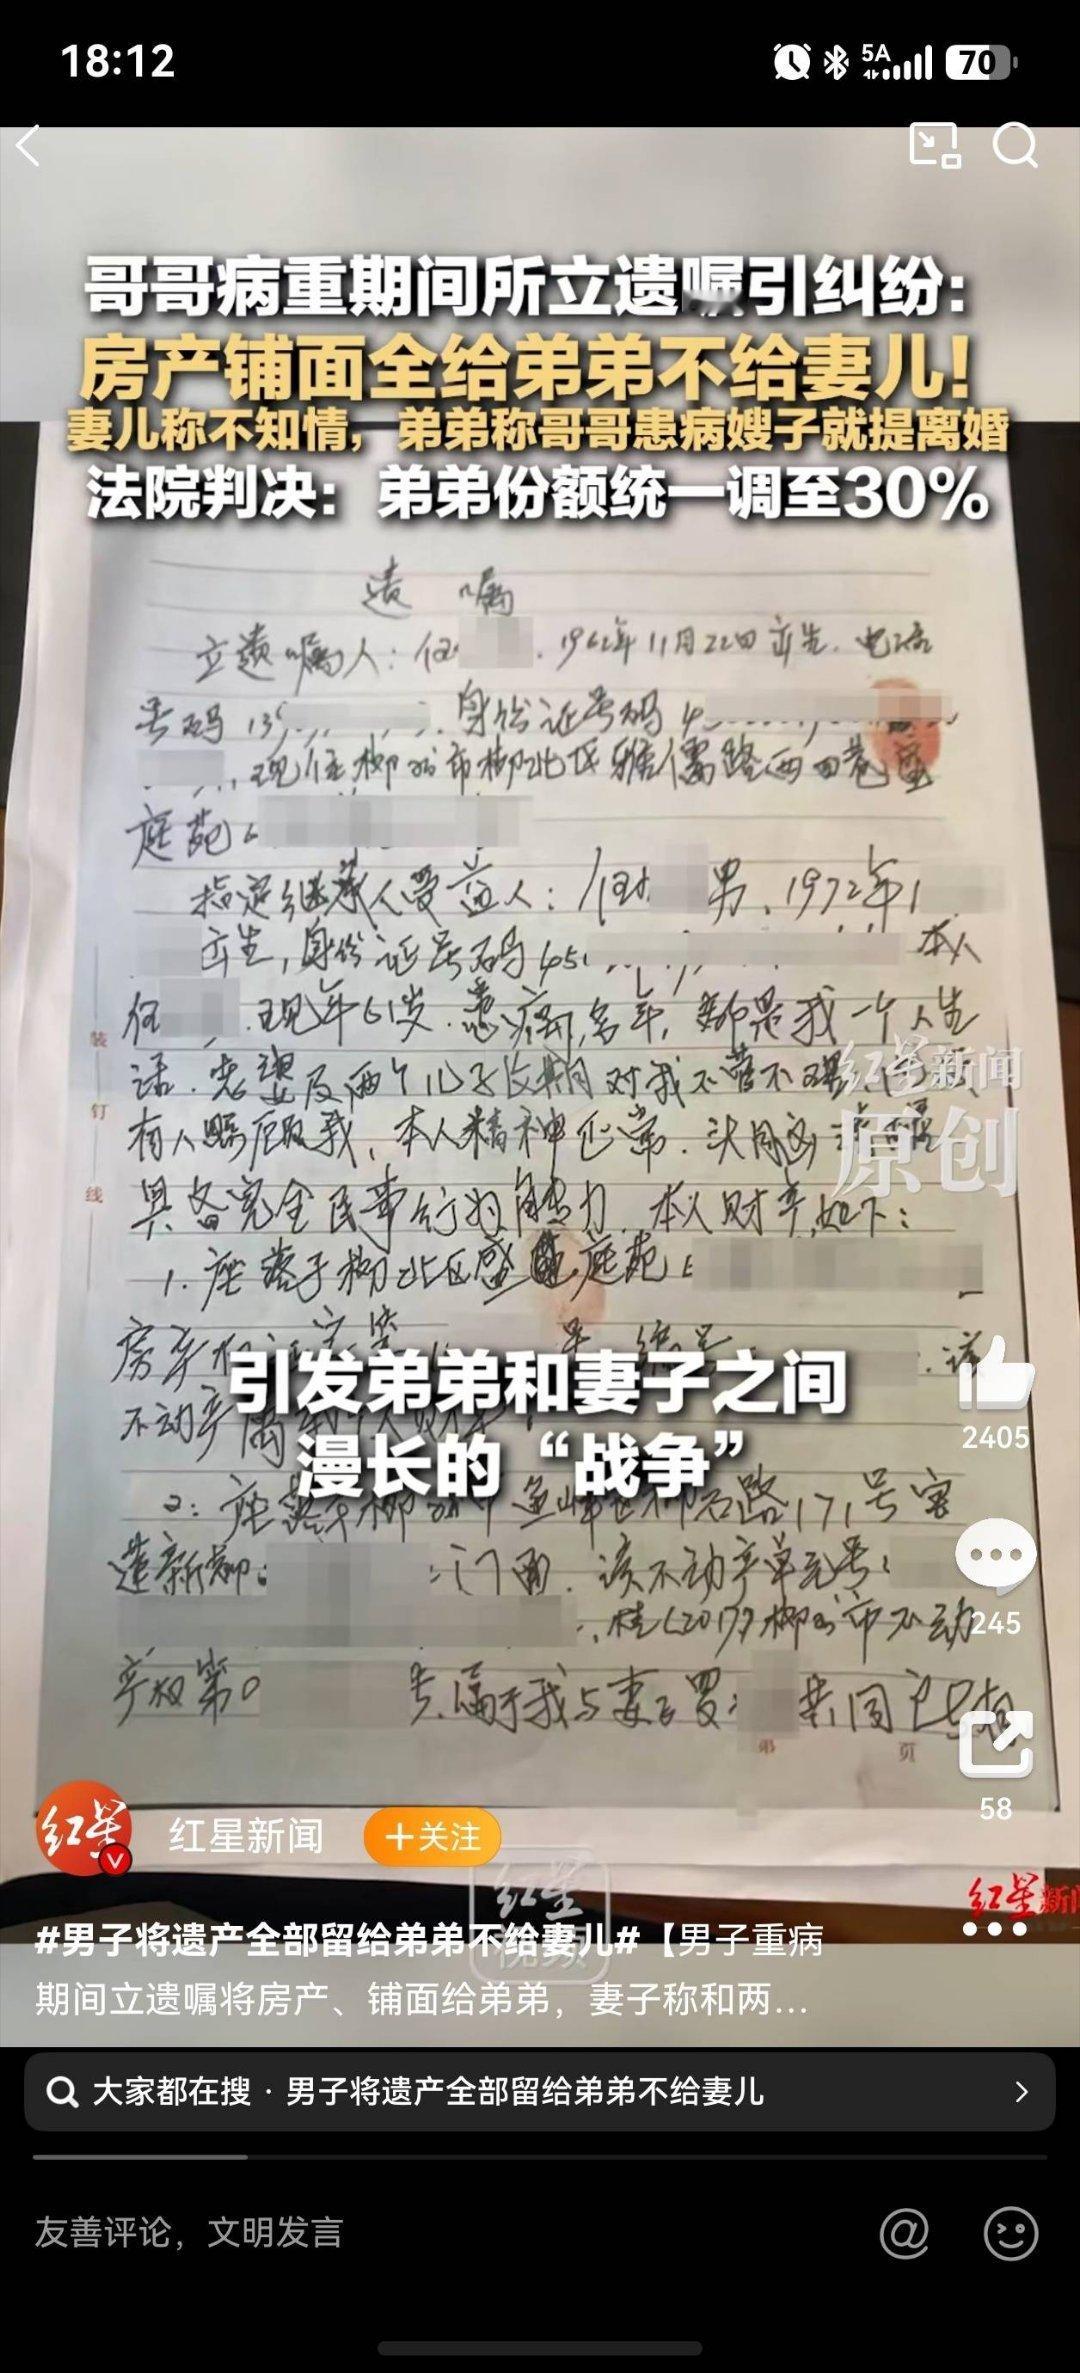 18:12
5A
70
哥哥病重期间所立遗嘱引纠纷：
房产铺面全给弟弟不给妻儿！
妻儿称不知情，弟弟称哥哥患病嫂子就提离婚
法院判决：弟弟份额统一调至30%
遗 嘱
立遗嘱人：任 . 1962年11月22日出生. 电话
号码139 . 身份证号码45
, 现住柳州市柳北区雅儒路西四巷盛
庭苑
指定继承人受益人：任 男、1972年1
出生，身份证号码45 本人
任 . 现年61岁. 患病多年, 都是我一个人生
活. 老婆及两个儿子长期对我不管不理
有人照顾我, 本人精神正常. 头脑
具备完全民事行为能力. 本人财产如下：
1. 座落于柳北区盛 庭苑
房产权 号 . 该
不动产属
引发弟弟和妻子之间
漫长的“战争”
2: 座落 柳石路171号
门面. 该不动产单元号：
, 桂(2017)柳州市不动
产权第0
号. 属于我与妻子罗 共同
第 页
装
订
线
红星新闻
原创
2405
245
58
红星
红星新闻
＋关注
红星
视频
红星新闻
#男子将遗产全部留给弟弟不给妻儿#【男子重病
期间立遗嘱将房产、铺面给弟弟，妻子称和两...
大家都在搜 · 男子将遗产全部留给弟弟不给妻儿
友善评论，文明发言